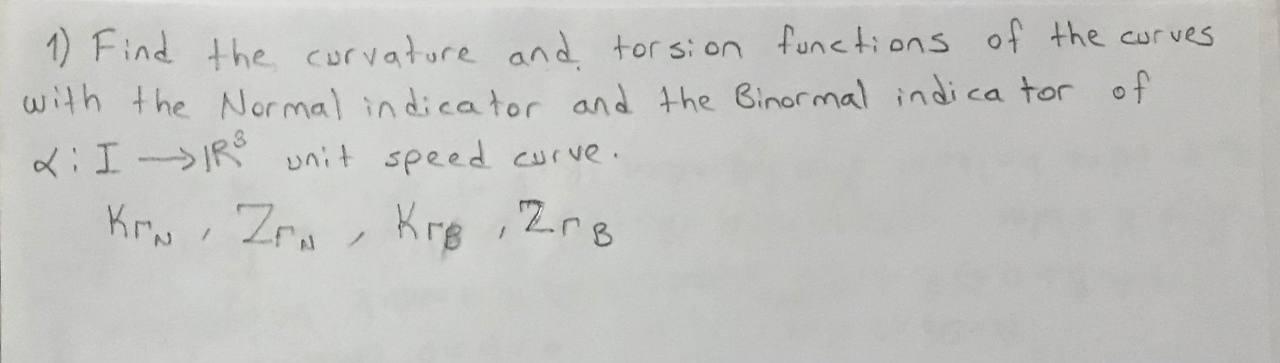 1) Find the curvature and torsion functions of the curves
with the Normal indicator and the Binormal indicator of
α: I → IR³ unit speed curve.
KΓN, ZΓN, KΓB, ZΓB